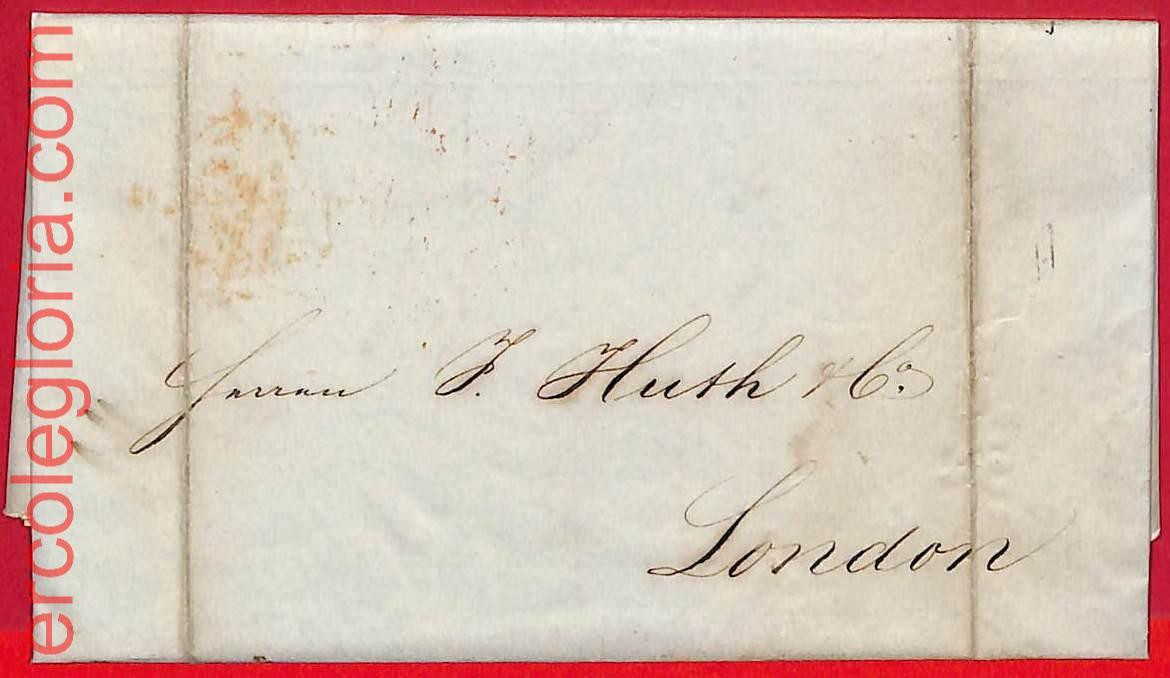 Herren F. Huth & Co.
London
ercolegloria.com